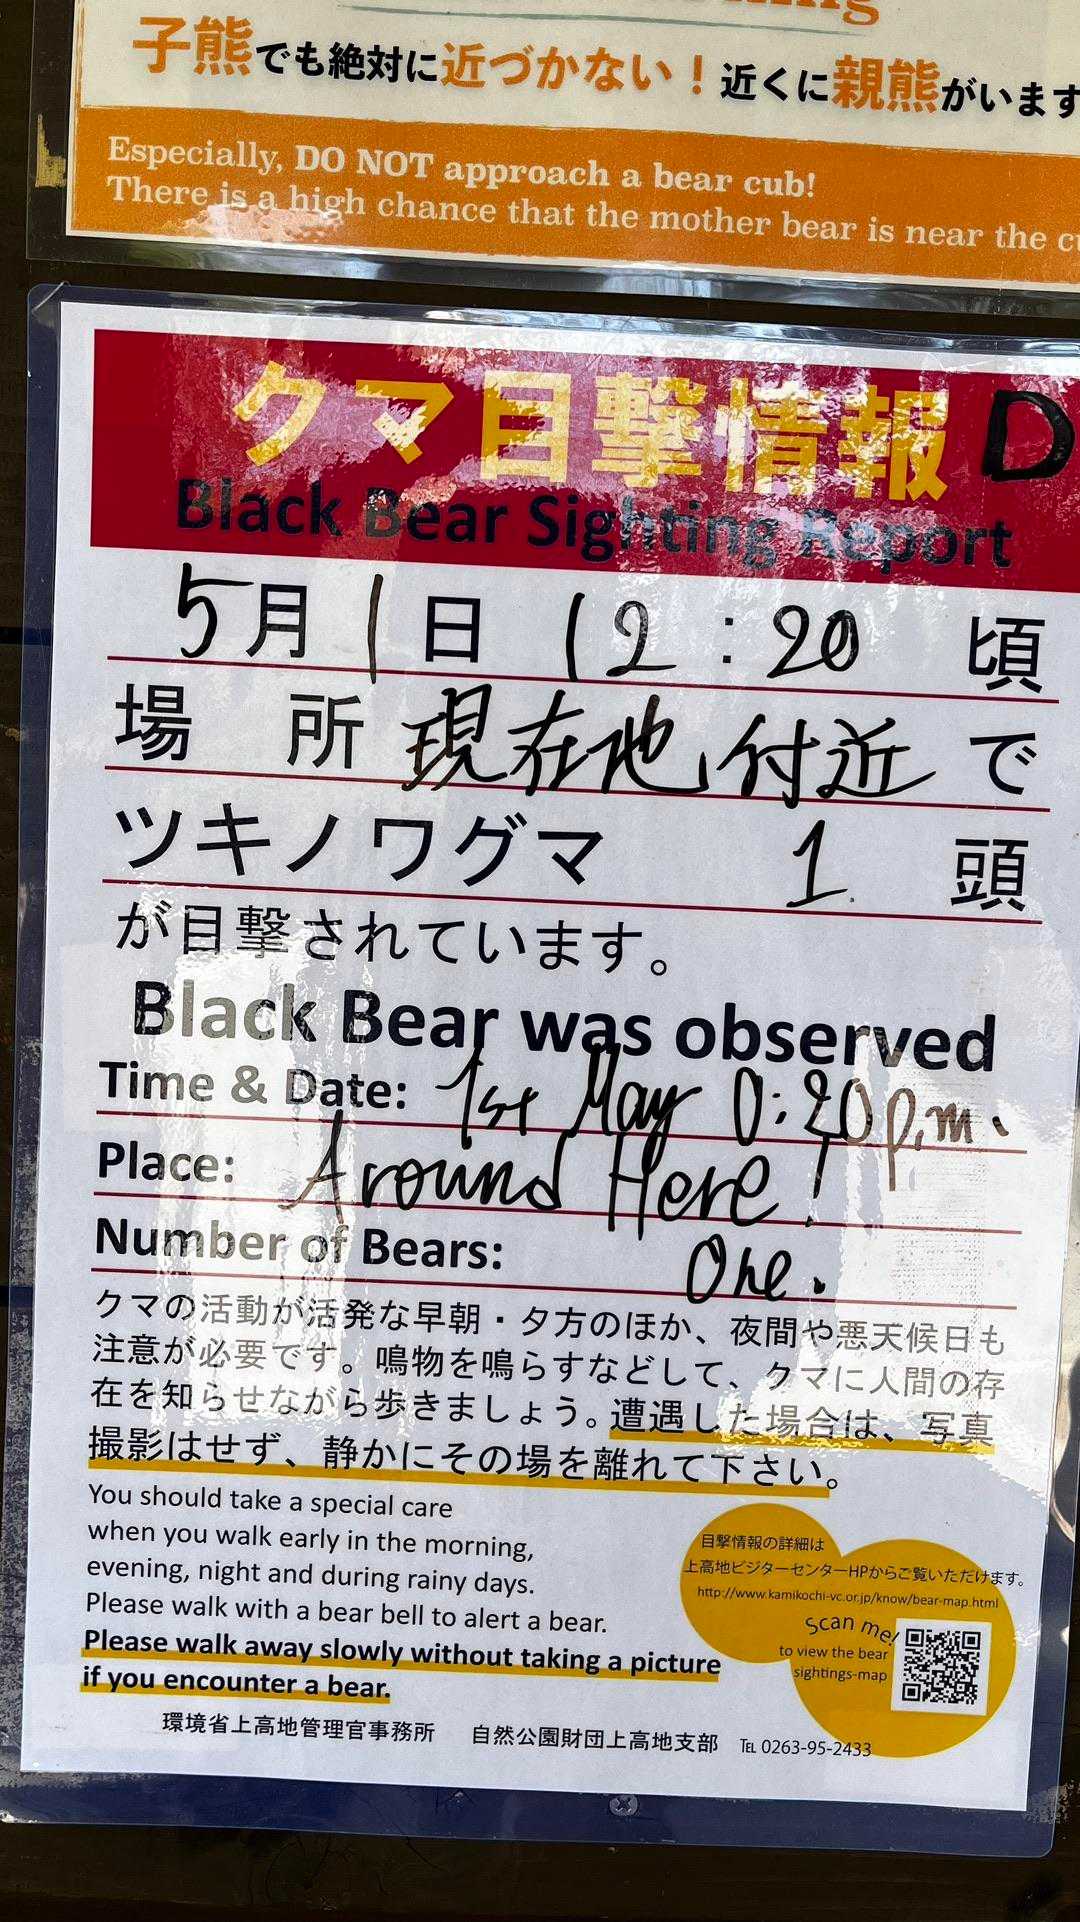 子熊でも絶対に近づかない！近くに親熊がいます
Especially, DO NOT approach a bear cub!
There is a high chance that the mother bear is near the
クマ目撃情報 D
Black Bear Sighting Report
5月1日 12:20 頃
場所 現在地付近で
ツキノワグマ 1 頭
が目撃されています。
Black Bear was observed
Time & Date: 1st May 0:20 p.m.
Place: Around Here!
Number of Bears: One.
クマの活動が活発な早朝・夕方のほか、夜間や悪天候日も
注意が必要です。鳴物を鳴らすなどして、クマに人間の存
在を知らせながら歩きましょう。遭遇した場合は、写真
撮影はせず、静かにその場を離れて下さい。
You should take a special care
when you walk early in the morning,
evening, night and during rainy days.
Please walk with a bear bell to alert a bear.
Please walk away slowly without taking a picture
if you encounter a bear.
目撃情報の詳細は
上高地ビジターセンターHPからご覧いただけます。
http://www.kamikochi-vc.or.jp/know/bear-map.html
Scan me!
to view the bear
sightings-map
環境省上高地管理官事務所 自然公園財団上高地支部 ℡ 0263-95-2433